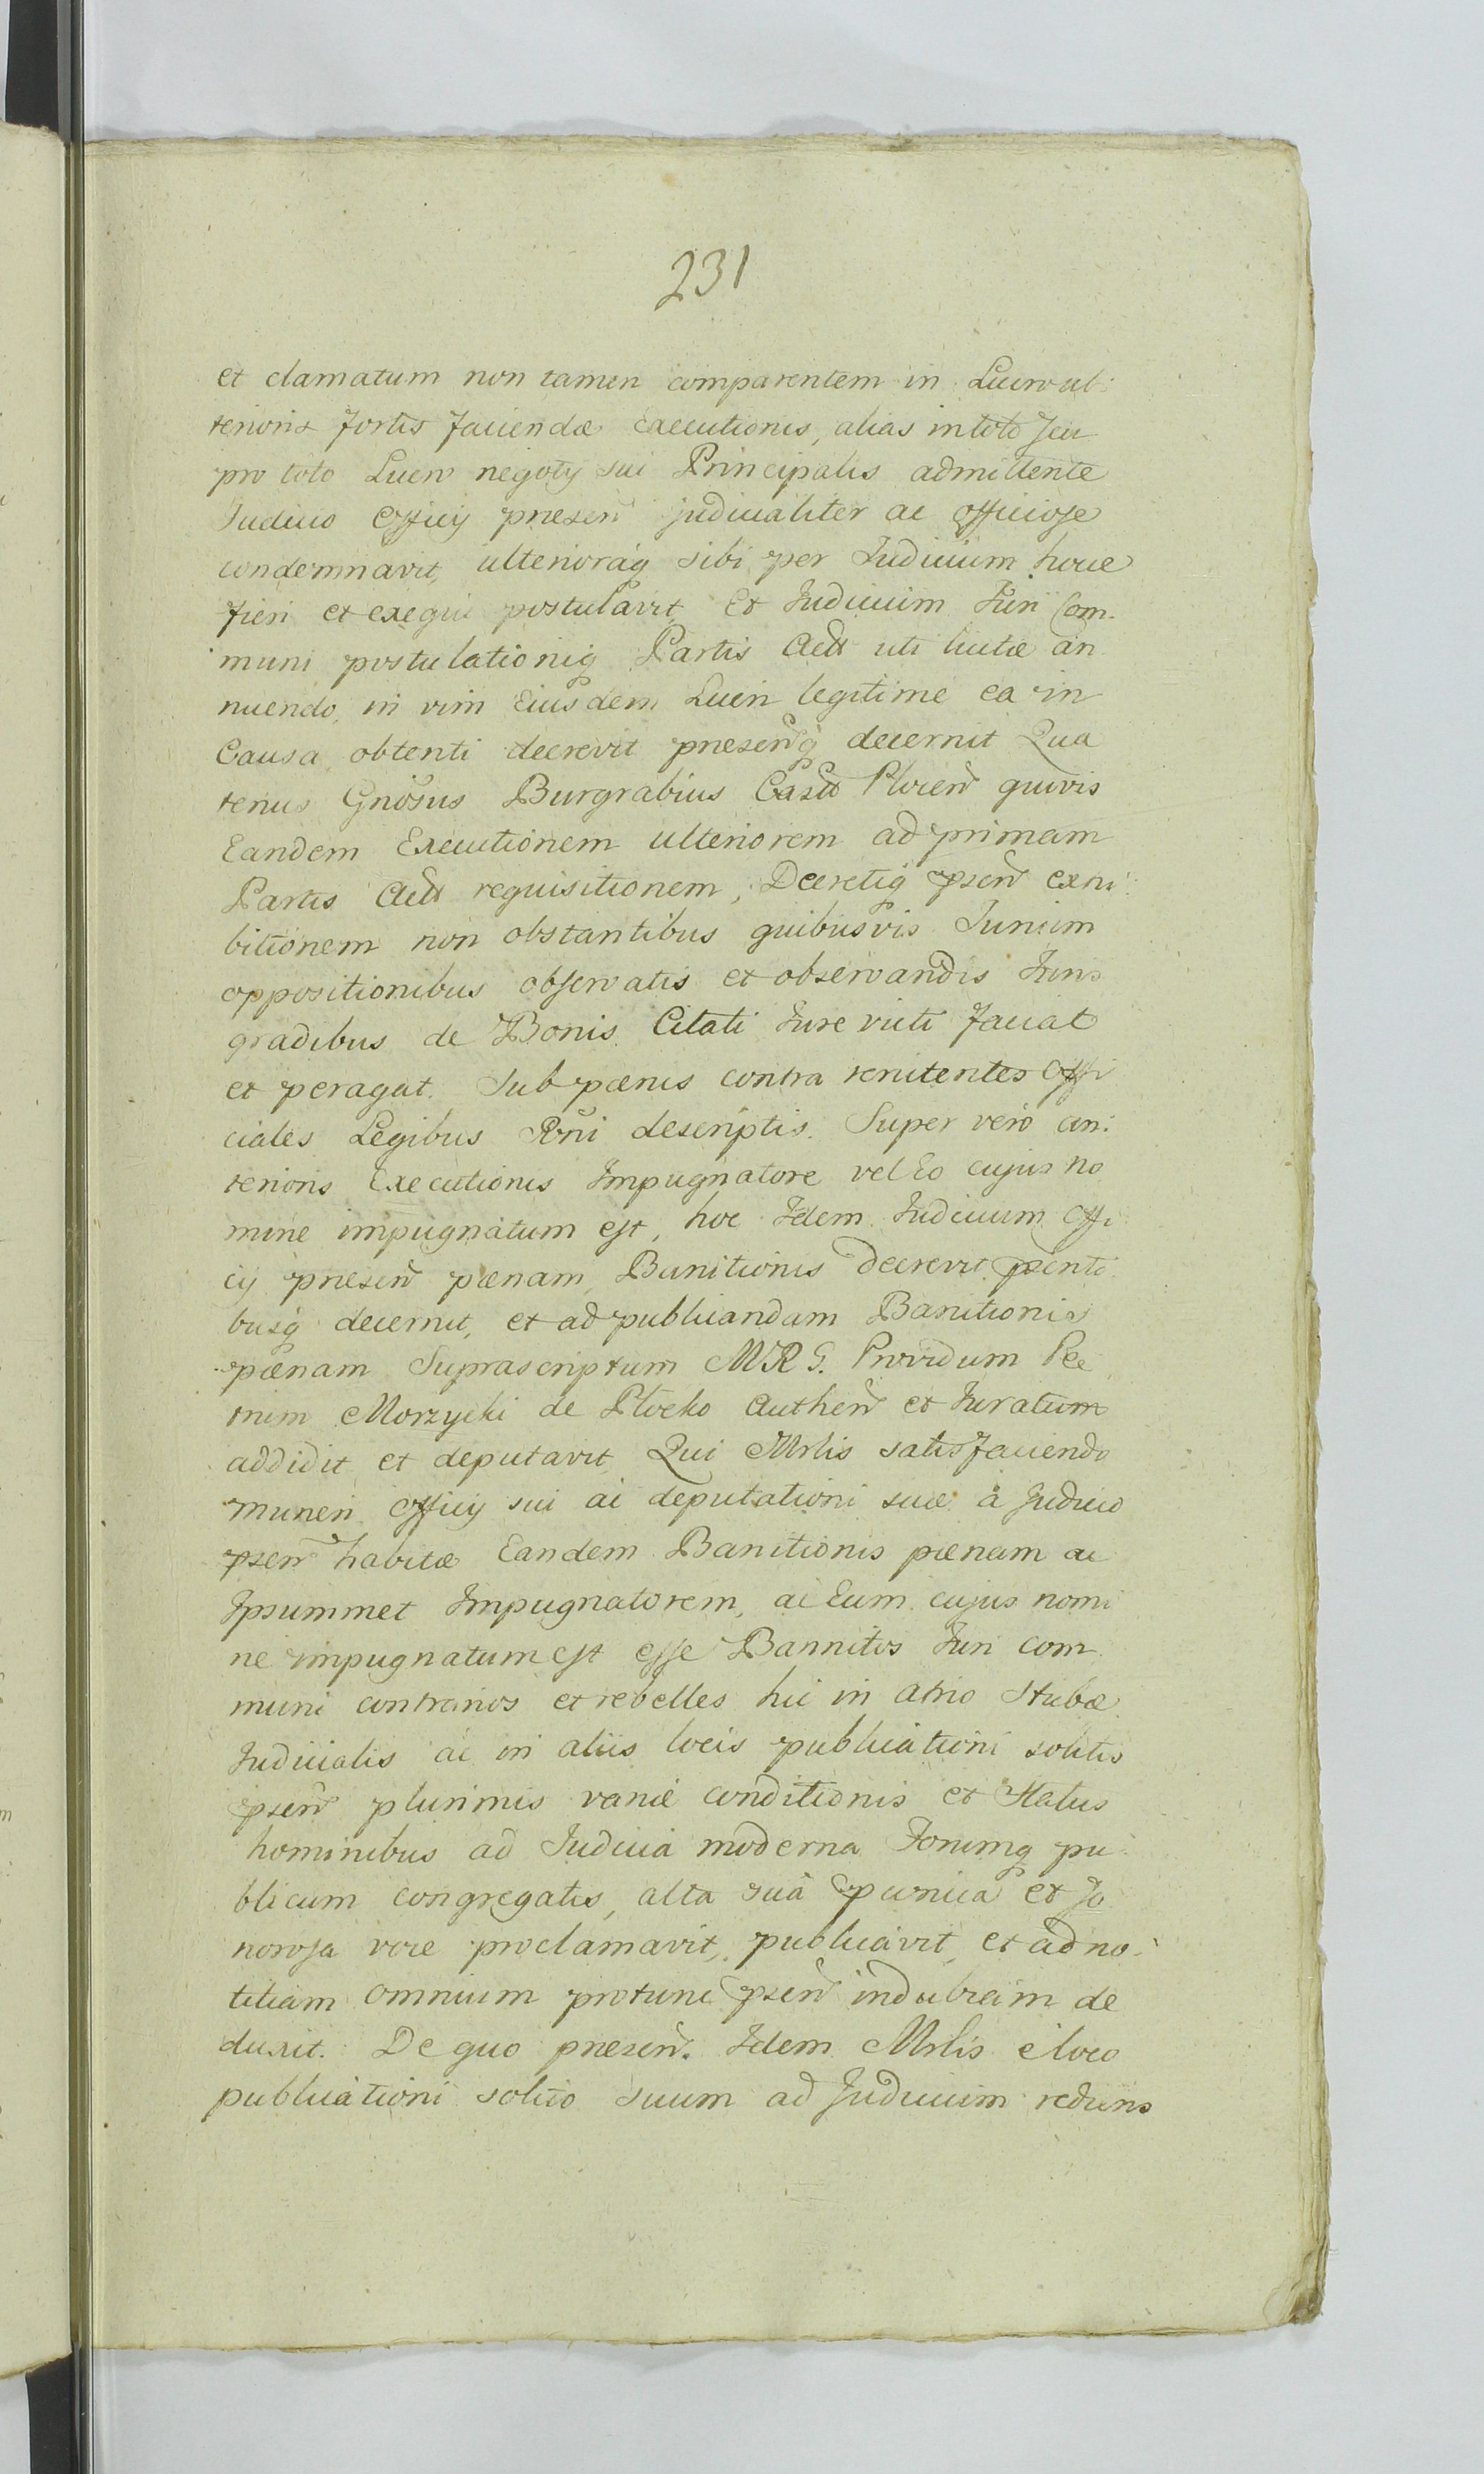 231
et clamatum non tamen comparentem in Lucro ul:
terioris fortis faciendæ Executionis, alias in toto seu
pro toto Lucro negotÿ sui Principalis admittente
Judicio Officÿ præsen judicialiter ac officiose
condemnavit, ulterioraq sibi per Judicium hocce
fieri et exequi postulavit, Et Judicium Juri Com.
muni postulationiq Partis Act uti licitæ an
nuendo, in vim Eiusdem Lucri legitime ea in
Causa obtenti decrevit præsenq decernit Qua
tenus Gnosus Burgrabius Castr Plocen quivis
Eandem Executionem ulteriorem ad primam
Partis Act requisitionem, Decretiq psen exni:
bitionem non obstantibus quibusvis Jurium
oppositionibus observatis et observandis Juris
gradibus de Bonis Citati Jure victi faciat
et peragat. Sub pœnis contra renitentes Offi
ciales Legibus Rni descriptis. Super vero an:
terioris Executionis Impugnatore vel Eo cujus no
mine impugnatum est, hoc Idem Judicium Offi
cÿ præsen pœnam Banitionis decrevit psenti
busq decernit, et ad publicandam Banitionis
pœnam Suprascriptum MRG. Providum
Morzycki de Plocko Authen et Juratum
addidit et deputavit, Qui Mrlis satisfaciendo
muneri Officÿ sui ac deputationi suæ à Judicio
psen habitæ Eandem Banitionis pœnam ac
Ipsummet Impugnatorem, ac Eum cujus nomi
ne impugnatum est esse Bannitos Juri com
muni contrarios et rebelles hic in atrio Stubæ
Judicialis ac in aliis locis publicationi solitis
psen plurimis variæ conditionis et Status
hominibus ad Judicia moderna Forumq pu
blicum congregatis, alta suâ pcunica et so
norosa voce proclamavit, publicavit, et ad no:
titiam omnium protunc psen indubiam de
duxit. De quo præsen. Idem Mrlis e loco
publicationi solito suum ad Judicium rediens